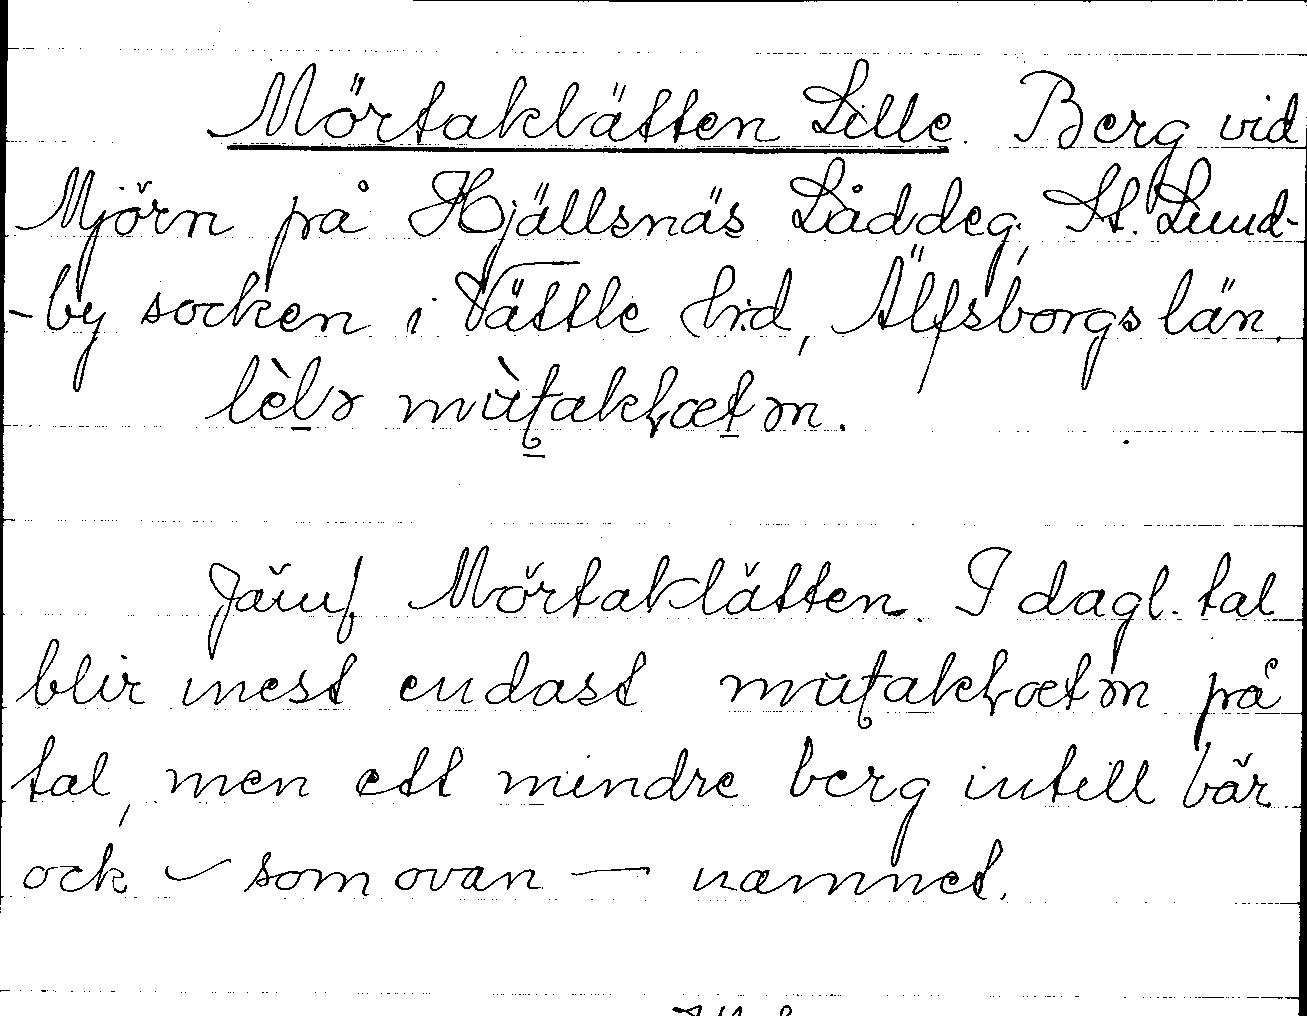 Mörtaklätten Lille. Berg vid
Mjörn på Hjällsnäs Låddeg., St. Lund-
-by socken i Vättle hrd, Älfsborgs län.
lèlɘ
Jämf Mörtaklätten. I dagl. tal
blir mest endast på
tal, men ett mindre berg intill bär
ock – som ovan — namnet.